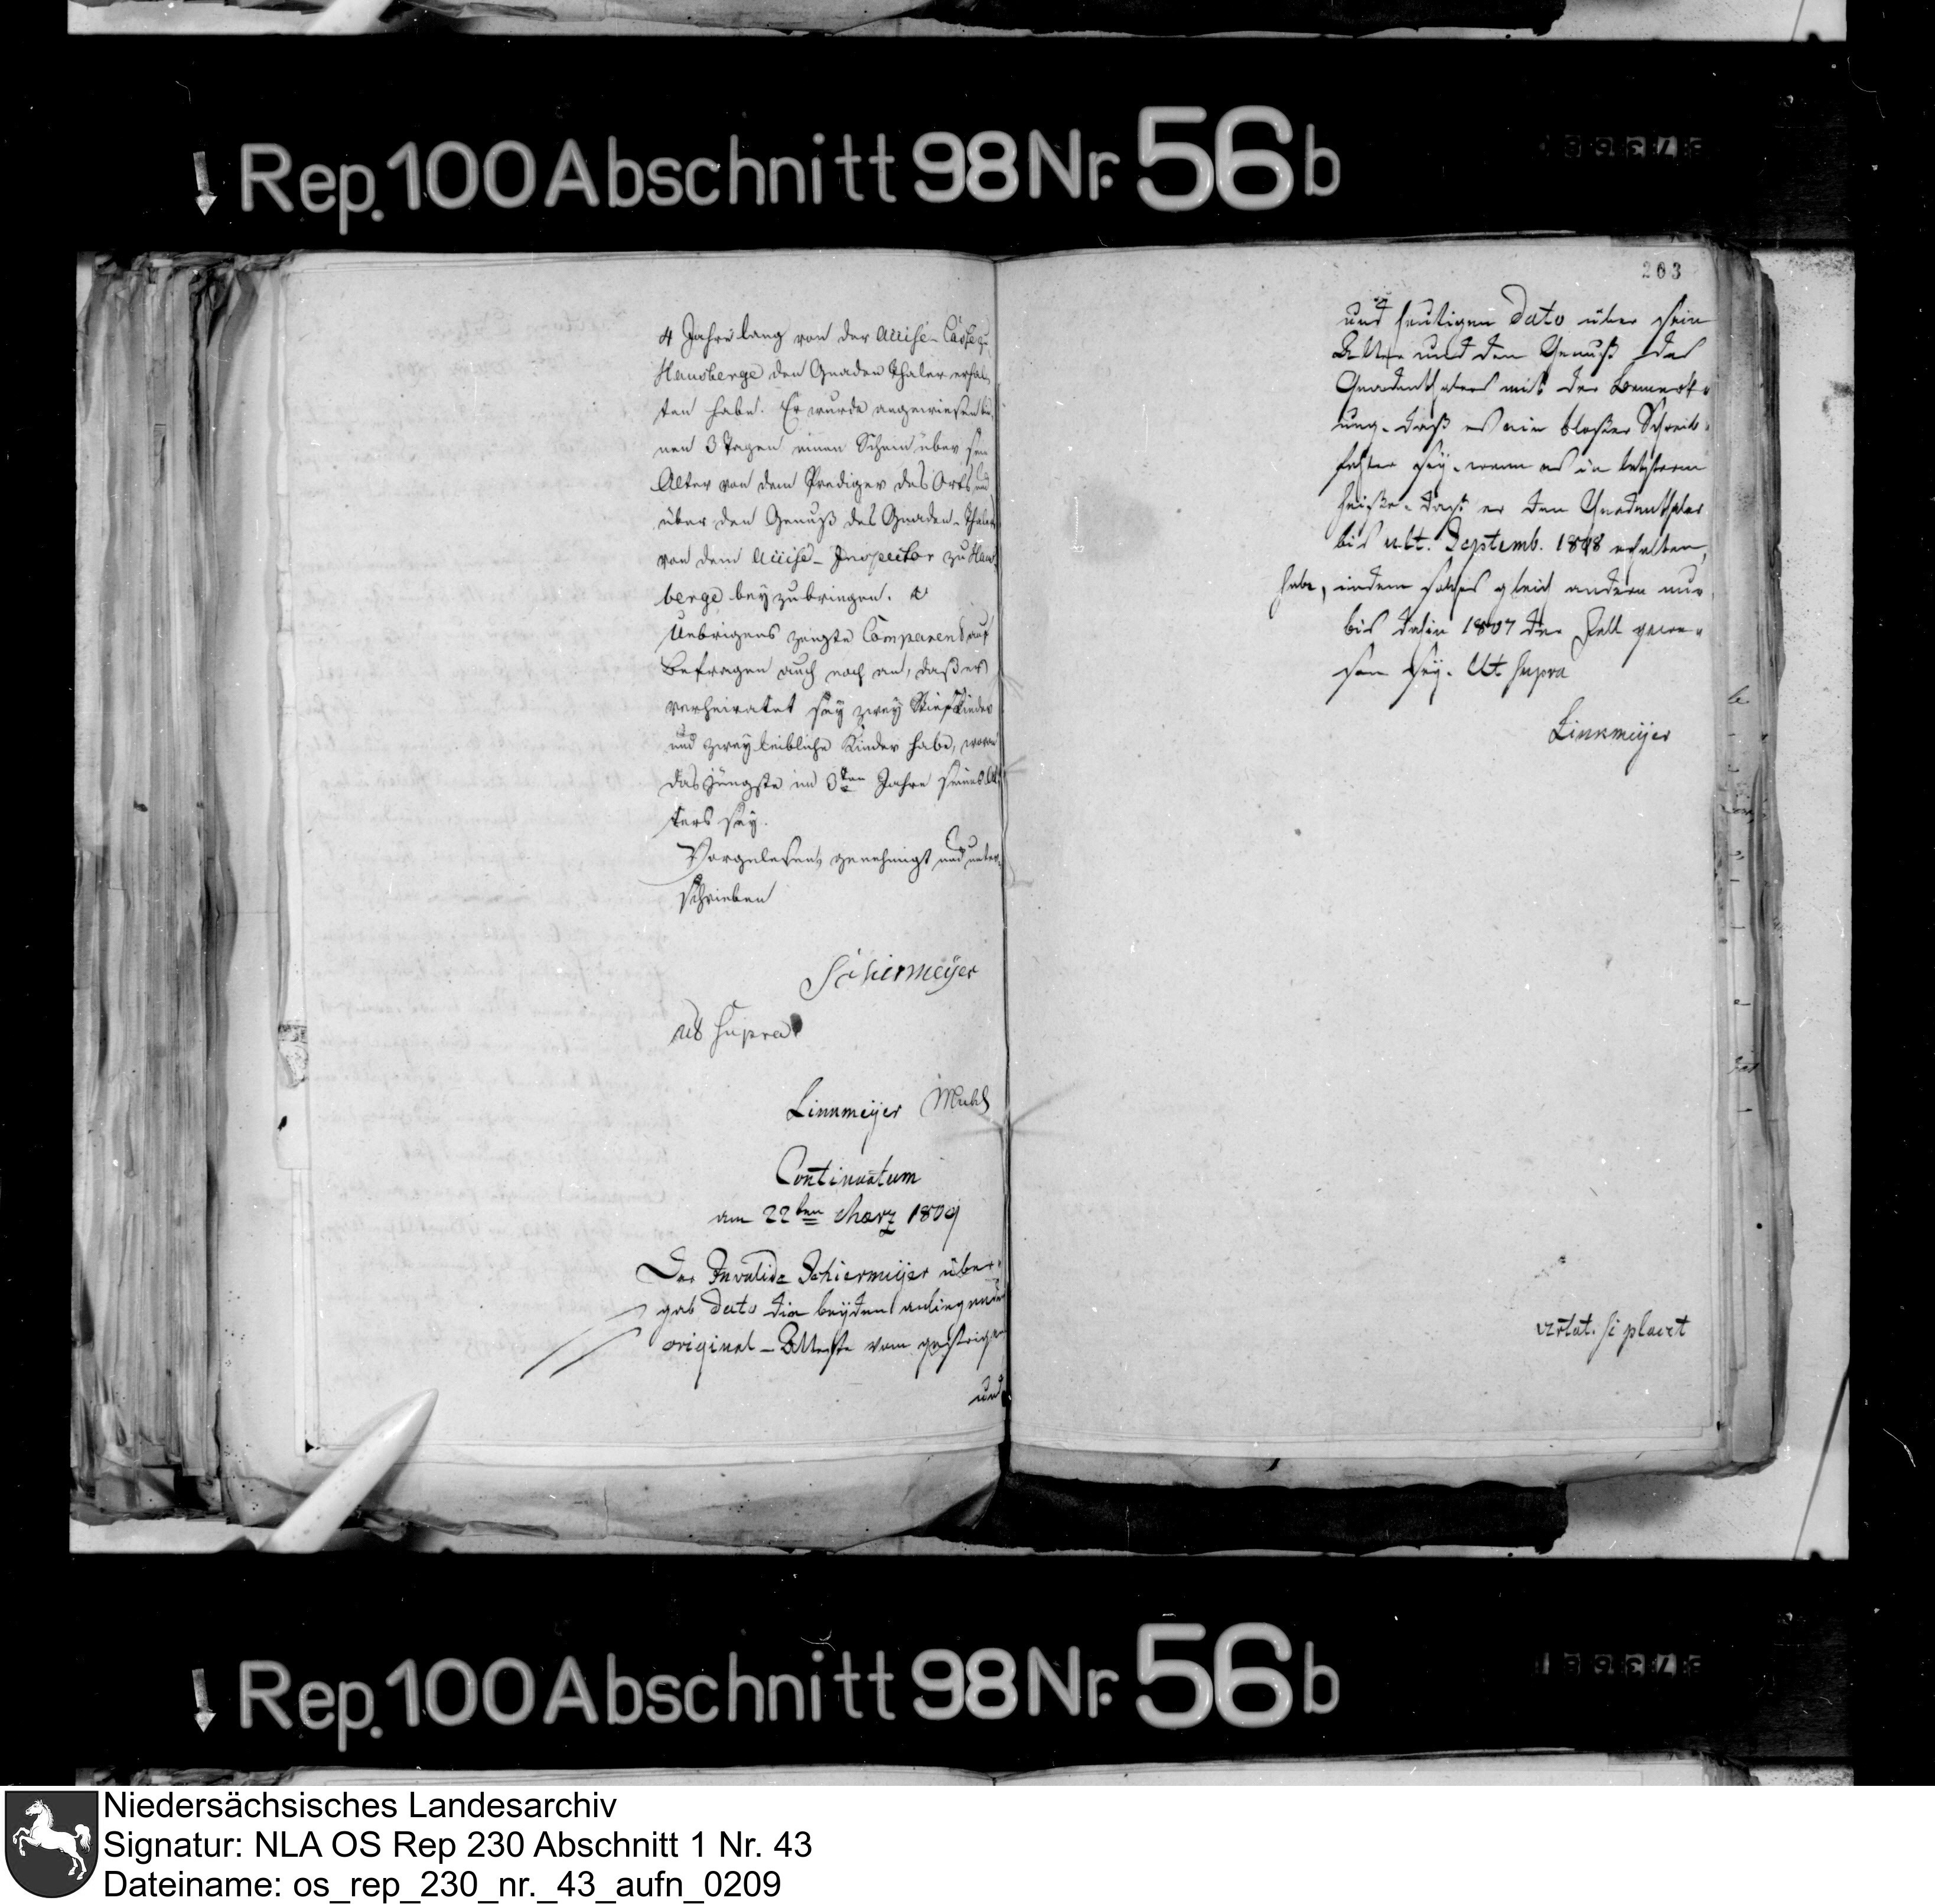 Rep. 100 Abschnitt 98 Nr. 56b
4 Jahre lang von der Accise-Casse zu
Hausberge den Gnaden Thaler erhal-
ten habe. Er wurde angewiesen bin-
nen 3 Tagen einen Schein über sein
Alter von dem Prediger des Orts und
über den Genuß des Gnaden-Thalers
von dem Accise-Inspector zu Haus-
berge beyzubringen.
Uebrigens zeigte Comparent auf
Befragen auch noch an, daß er
verheiratet sey zwey Stiefkinder
und zwey leibliche Kinder habe, wovon
das jüngste im 3ten Jahre seines Al-
ters sey.
Vorgelesen, genehmigt und unter-
schrieben
Schiermeyer
ut supra
Linnmeyer
Continuatum
am 22ten Marz 1809
Der Invalide Schiermeyer über-
gab dato die beyden anliegenden
original-Atteste vom gestrigen
und
203
und heutigen dato über sein
Alter und den Genuß des
Gnadenthalers mit der Bemerk-
ung, daß es ein bloßer Schreib-
fehler sey, wenn es in letzterm
heiße, daß er den Gnadenthaler
bis ult. Septemb. 1808 erhalten
habe, indem solches gleich andern nur
bis dahin 1807 der Fall gewe-
sen sey. Ut supra
Linnmeyer
vertat. si placet
Rep. 100 Abschnitt 98 Nr. 56b
Niedersächsisches Landesarchiv
Signatur: NLA OS Rep 230 Abschnitt 1 Nr. 43
Dateiname: os_rep_230_nr._43_aufn_0209